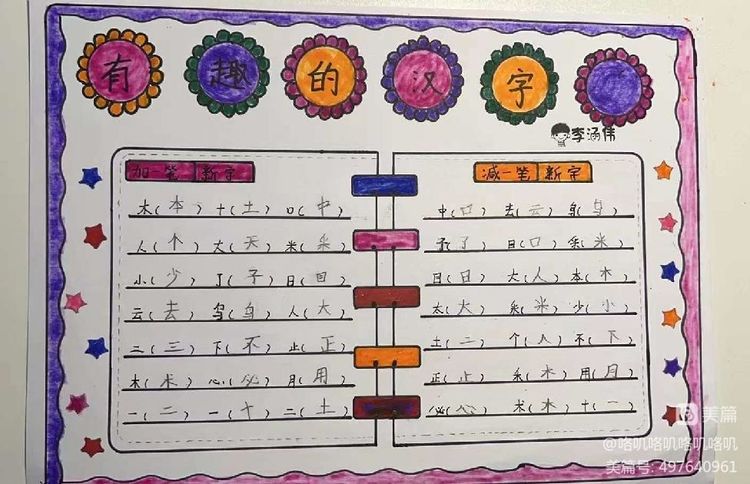 有趣的汉字
李涵伟
加一笔新字
木(本) 十(土) 口(中)
人(个) 大(天) 米(采)
小(少) 了(子) 日(目)
云(去) 乌(鸟) 人(大)
二(三) 下(不) 止(正)
木(术) 心(必) 月(用)
一(二) 一(十) 二(土)
减一笔新字
中(口) 去(云) 鸟(乌)
予(了) 日(口) 采(米)
目(日) 大(人) 本(木)
太(大) 采(米) 少(小)
土(二) 个(人) 不(下)
正(止) 禾(木) 用(月)
必(心) 术(木) 十(一)
美篇
@咯叽咯叽咯叽咯叽
美篇号: 497640961